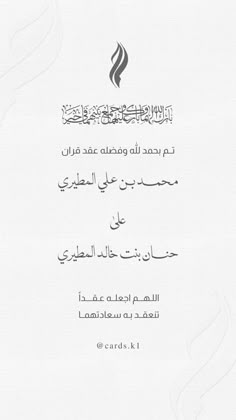 بارك الله لهما وبارك عليهما وجمع بينهما في خير
تم بحمد لله وفضله عقد قران
محمد بن علي المطيري
على
حنان بنت خالد المطيري
اللهم اجعله عقداً
تنعقد به سعادتهما
@cards.k1